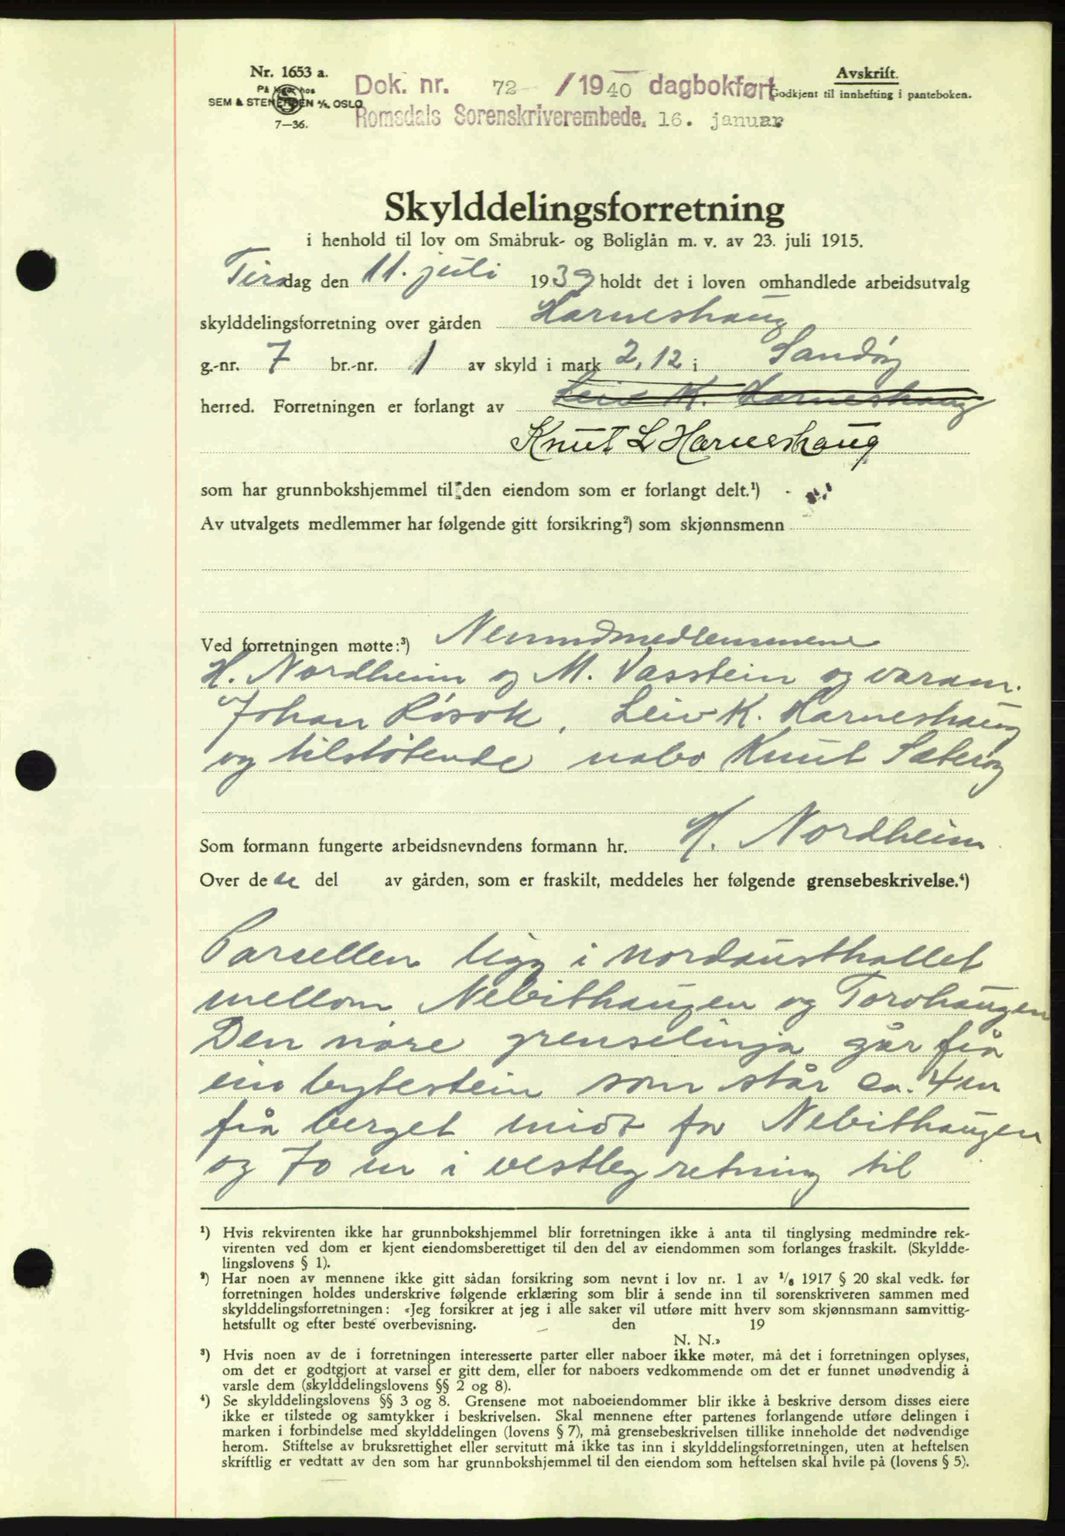 Nr. 1653 a.
På hos
SEM & STENERSEN A/S, OSLO
7—36.
Dok. nr. 72 /1940 dagbokført
Romsdals Sorenskriverembede. 16. januar
Avskrift.
Godkjent til innhefting i panteboken.
Skylddelingsforretning
i henhold til lov om Småbruk- og Boliglån m. v. av 23. juli 1915.
Tirsdag den 11. juli 1939 holdt det i loven omhandlede arbeidsutvalg
skylddelingsforretning over gården Harneshaug
g.-nr. 7 br.-nr. 1 av skyld i mark 2,12 i Sandøy
herred. Forretningen er forlangt av Leiv K. Harneshaug
Knut L Harneshaug
som har grunnbokshjemmel til den eiendom som er forlangt delt.¹)
Av utvalgets medlemmer har følgende gitt forsikring²) som skjønnsmenn
Ved forretningen møtte:³) Nemndmedlemmene
H. Nordheim og M. Vasstein og varam.
Johan Rösok, Leiv K. Harneshaug
og tilstötende nabo Knut Sæterøy
Som formann fungerte arbeidsnevndens formann hr. H. Nordheim
Over den del av gården, som er fraskilt, meddeles her følgende grensebeskrivelse.⁴)
Parsellen ligg i nordausthallet
mellom Nebithaugen og Torvhaugen
Den nore grenselinja går frå
ein bytestein som står ca. 4 m
frå berget midt for Nebithaugen
og 70 m i vestleg retning til
¹) Hvis rekvirenten ikke har grunnbokshjemmel blir forretningen ikke å anta til tinglysing medmindre rek-
virenten ved dom er kjent eiendomsberettiget til den del av eiendommen som forlanges fraskilt. (Skyldde-
lingslovens § 1).
²) Har noen av mennene ikke gitt sådan forsikring som nevnt i lov nr. 1 av ¹/₆ 1917 § 20 skal vedk. før
forretningen holdes underskrive følgende erklæring som blir å sende inn til sorenskriveren sammen med
skylddelingsforretningen: «Jeg forsikrer at jeg i alle saker vil utføre mitt hverv som skjønnsmann samvittig-
hetsfullt og efter beste overbevisning. den 19
N. N.»
³) Hvis noen av de i forretningen interesserte parter eller naboer ikke møter, må det i forretningen oplyses,
om det er godtgjort at varsel er gitt dem, eller for naboers vedkommende om det er funnet unødvendig å
varsle dem (skylddelingslovens §§ 2 og 8).
⁴) Se skylddelingslovens §§ 3 og 8. Grensene mot naboeiendommer blir ikke å beskrive dersom disses eiere
ikke er tilstede og samtykker i beskrivelsen. Skal mennene efter partenes forlangende utføre delingen i
marken i forbindelse med skylddelingen (lovens § 7), må grensebeskrivelsen tillike inneholde det nødvendige
herom. Stiftelse av bruksrettighet eller servitutt må ikke tas inn i skylddelingsforretningen, uten at heftelsen
skriftlig er vedtatt av den som har grunnbokshjemmel til den eiendom som heftelsen skal hvile på (lovens § 5).